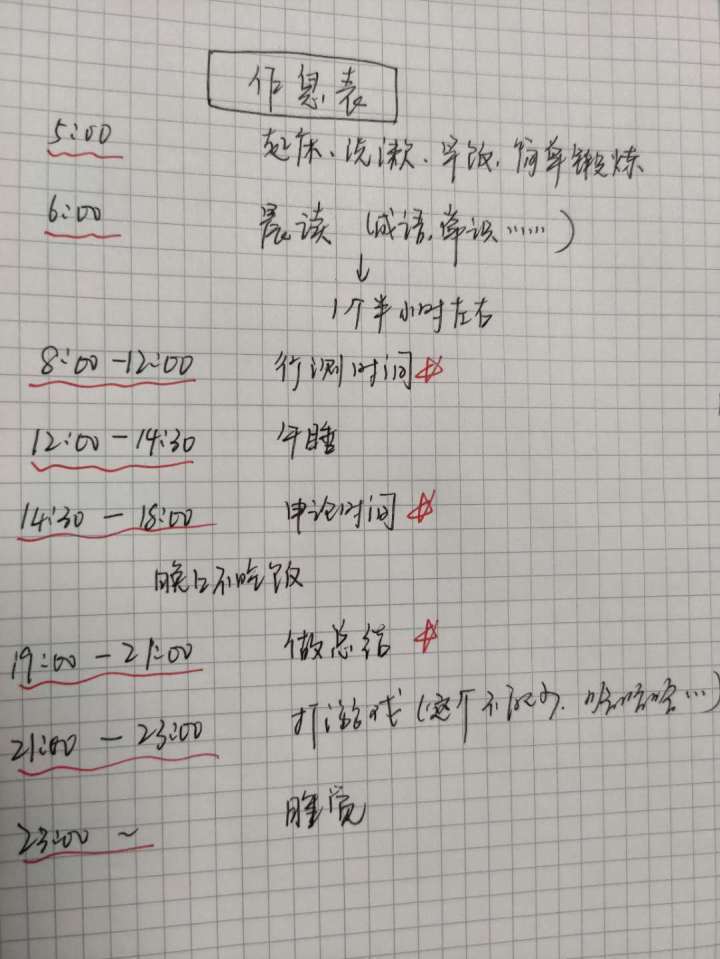 作息表
5:00 起床、洗漱、早饭、简单锻炼
6:00 晨读 (成语,常识……)
↓
1个半小时左右
8:00-12:00 行测时间
12:00-14:30 午睡
14:30-18:00 申论时间
晚上不吃饭
19:00-21:00 做总结
21:00-23:00 打游戏 (这个不能少, 哈哈哈…)
23:00~ 睡觉